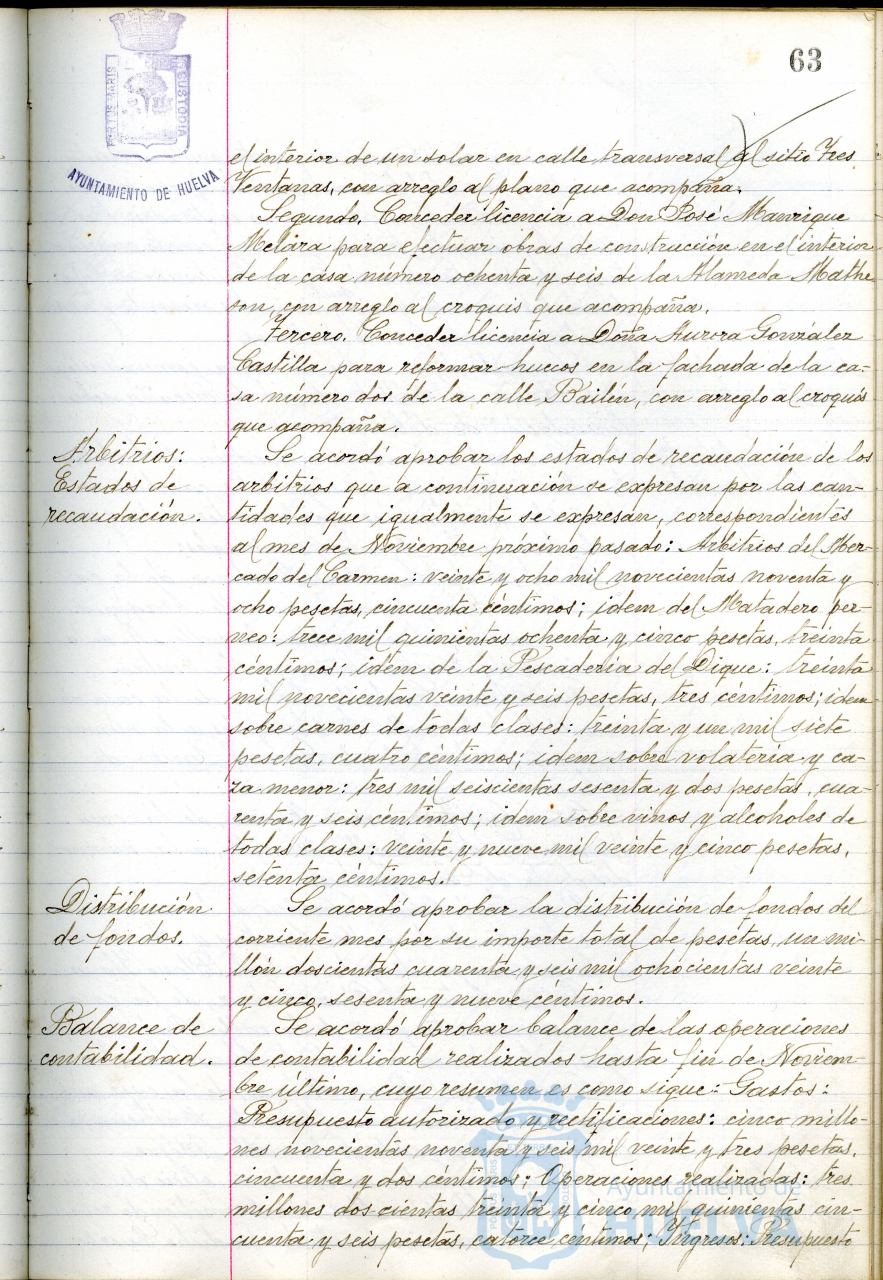 63
PORTUS MARIS
CUSTODIA
AYUNTAMIENTO DE HUELVA
el interior de un solar en calle transversal al sitio Tres
Ventanas, con arreglo al plano que acompaña.
Segundo. Conceder licencia a Don José Manrique
Melára para efectuar obras de construcción en el interior
de la casa número ochenta y seis de la Alameda Mathe-
son, con arreglo al croquis que acompaña.
Tercero. Conceder licencia a Doña Aurora González
Castilla para reformar huecos en la fachada de la ca-
sa número dos de la calle Bailén, con arreglo al croquis
que acompaña.
Arbitrios:
Estados de
recaudación.
Se acordó aprobar los estados de recaudación de los
arbitrios que a continuación se expresan por las can-
tidades que igualmente se expresan, correspondientes
al mes de Noviembre próximo pasado: Arbitrios del Mer-
cado del Carmen: veinte y ocho mil novecientas noventa y
ocho pesetas, cincuenta céntimos; idem del Matadero per-
neo: trece mil quinientas ochenta y cinco pesetas, treinta
céntimos; idem de la Pescadería del Dique: treinta
mil novecientas veinte y seis pesetas, tres céntimos; idem
sobre carnes de todas clases: treinta y un mil siete
pesetas, cuatro céntimos; idem sobre volatería y ca-
za menor: tres mil seiscientas sesenta y dos pesetas, cua-
renta y seis céntimos; idem sobre vinos y alcoholes de
todas clases: veinte y nueve mil veinte y cinco pesetas,
setenta céntimos.
Distribución
de fondos.
Se acordó aprobar la distribución de fondos del
corriente mes por su importe total de pesetas, un mi-
llón doscientas cuarenta y seis mil ochocientas veinte
y cinco, sesenta y nueve céntimos.
Balance de
contabilidad.
Se acordó aprobar balance de las operaciones
de contabilidad realizados hasta fin de Noviem-
bre último, cuyo resumen es como sigue: Gastos:
Presupuesto autorizado y rectificaciones: cinco millo-
nes novecientas noventa y seis mil veinte y tres pesetas,
cincuenta y dos céntimos; Operaciones realizadas: tres
millones dos cientas treinta y cinco mil quinientas cin-
cuenta y seis pesetas, catorce céntimos; Ingresos: Presupuesto
Ayuntamiento de
HUELVA